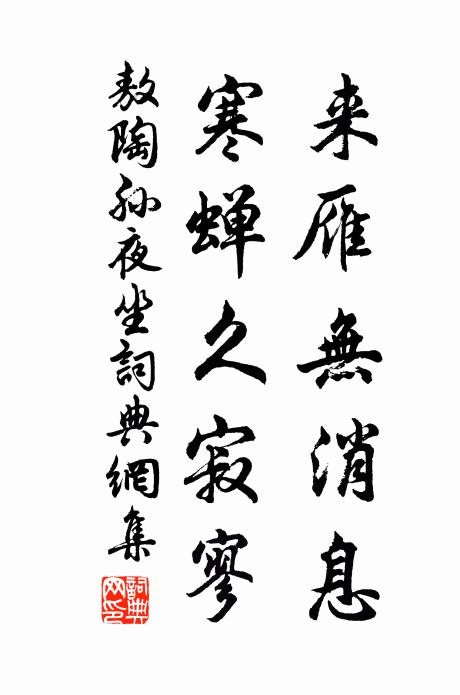 来雁無消息
寒蝉久寂寥
敖陶孙夜坐詞典網集
詞典網印